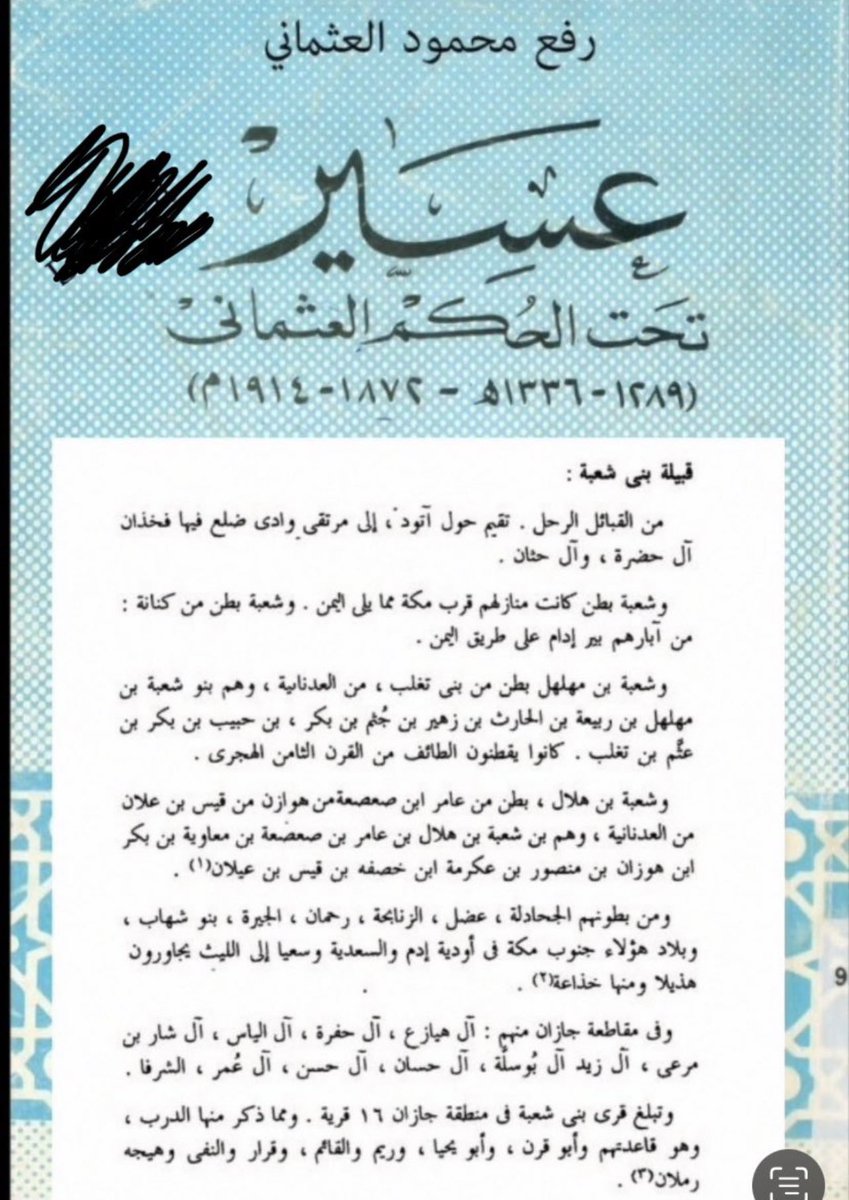 رفع محمود العثماني
عسير
تحت الحكم العثمانى
(١٢٨٩-١٣٣٦هـ - ١٨٧٢-١٩١٤م)
قبيلة بنى شعبة :
من القبائل الرحل . تقيم حول آتود ، إلى مرتقى وادى ضلع فيها فخذان
آل حضرة ، وآل حثان .
وشعبة بطن كانت منازلهم قرب مكة مما يلى اليمن . وشعبة بطن من كنانة :
من آبارهم بير إدام على طريق اليمن .
وشعبة بن مهلهل بطن من بنى تغلب ، من العدنانية ، وهم بنو شعبة بن
مهلهل بن ربيعة بن الحارث بن زهير بن جُثم بن بكر ، بن حبيب بن بكر بن
عثَّم بن تغلب . كانوا يقطنون الطائف من القرن الثامن الهجرى .
وشعبة بن هلال ، بطن من عامر ابن صعصعة من هوازن من قيس بن علان
من العدنانية ، وهم بن شعبة بن هلال بن عامر بن صعصعة بن معاوية بن بكر
ابن هوزان بن منصور بن عكرمة ابن خصفه بن قيس بن عيلان(١) .
ومن بطونهم الجحادلة ، عضل ، الزنابحة ، رحمان ، الجيرة ، بنو شهاب ،
وبلاد هؤلاء جنوب مكة فى أودية إدم والسعدية وسعيا إلى الليث يجاورون
هذيلا ومنها خذاعة(٢) .
وفى مقاطعة جازان منهم : آل هيازع ، آل حفرة ، آل الياس ، آل شار بن
مرعى ، آل زيد آل بُوسلَّة ، آل حسان ، آل حسن ، آل عُمر ، الشرفا .
وتبلغ قرى بنى شعبة فى منطقة جازان ١٦ قرية . ومما ذكر منها الدرب ،
وهو قاعدتهم وأبو قرن ، وأبو يحيا ، وريم والقائم ، وقرار والنفى وهيجه
رملان(٣) .
9